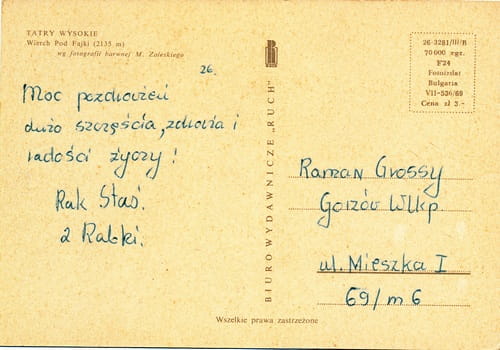 TATRY WYSOKIE
Wierch Pod Fajki (2135 m)
wg fotografii barwnej M. Zaleskiego
26.
Moc pozdrowień
dużo szczęścia, zdrowia i
radości życzy!
Rak Staś.
z Rabki.
BIURO WYDAWNICZE „RUCH”
26-3281/III/B
70 000 egz.
F24
Fotoizdat
Bulgaria
VII-536/68
Cena zł 3.-
Roman Grossy
Gorzów Wlkp.
ul. Mieszka I
69/m 6
Wszelkie prawa zastrzeżone